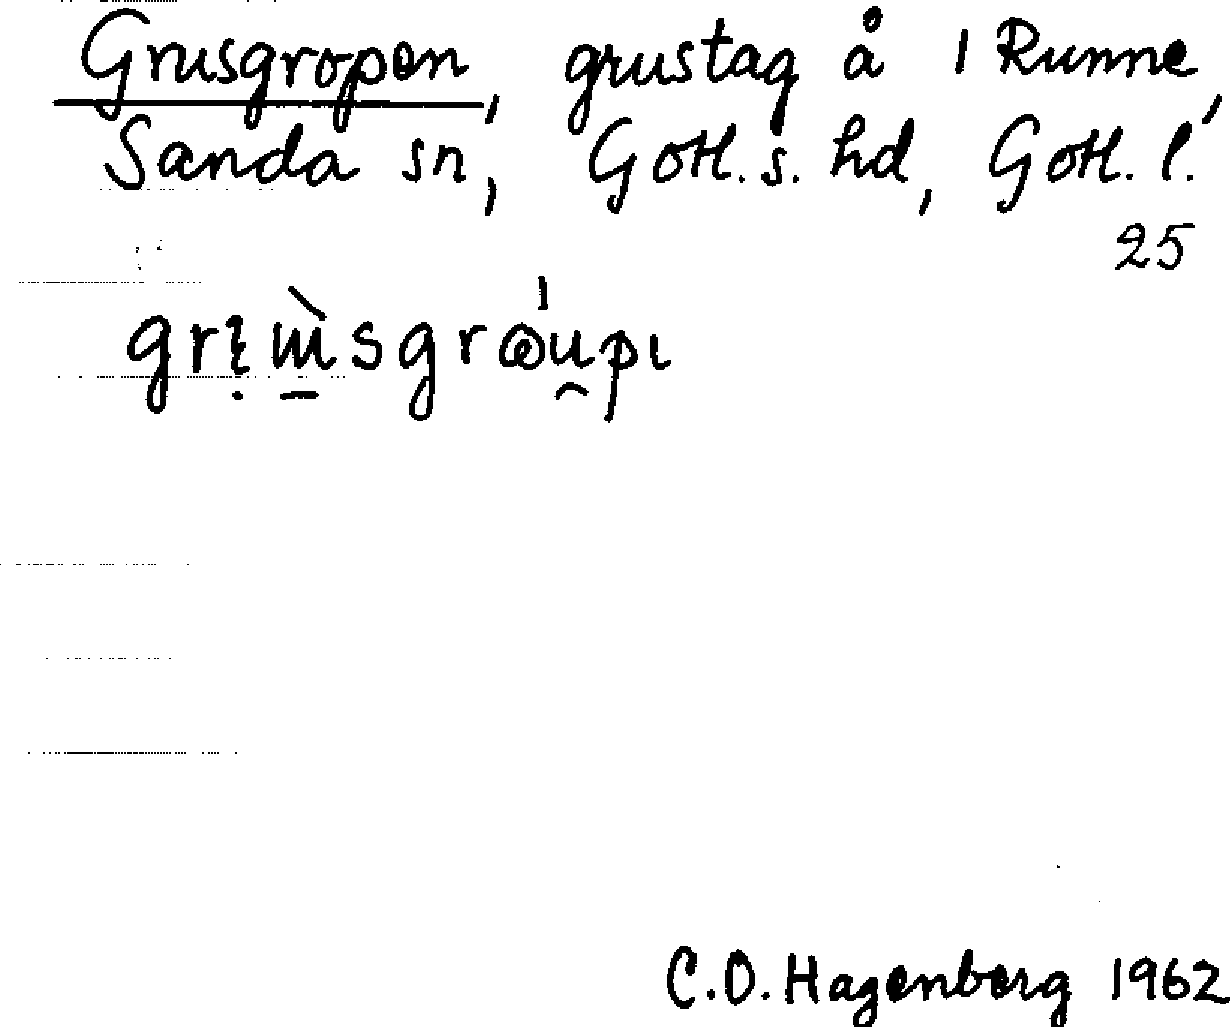 Grusgropen, grustag å 1 Runne,
Sanda sn, Gotl. s. hd, Gotl. l.
25
C.O. Hagenberg 1962